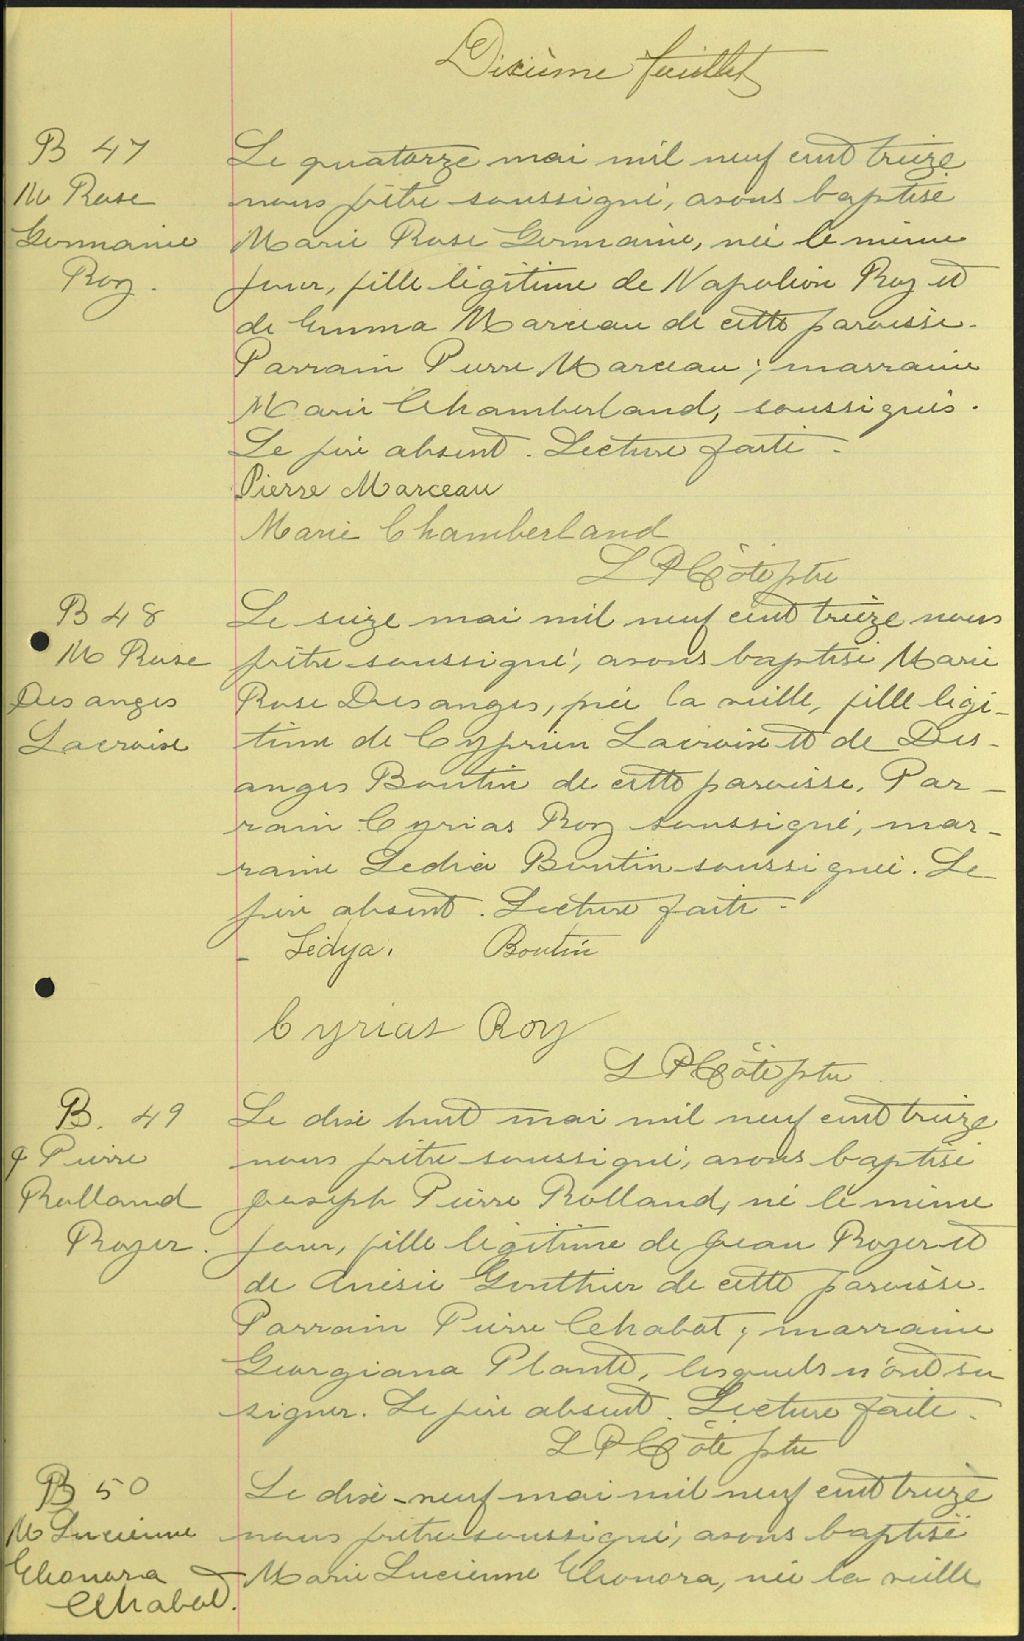 Dixième feuillet
B 47
M Rose
Germaine
Roy.
Le quatorze mai mil neuf cent treize
nous prêtre soussigné, avons baptisé
Marie Rose Germaine, née le même
jour, fille légitime de Napoléon Roy et
de Emma Marceau de cette paroisse.
Parrain Pierre Marceau; marraine
Marie Chamberland, soussignés.
Le père absent. Lecture faite.
Pierre Marceau
Marie Chamberland
L P Côté ptre
B 48
M Rose
Des anges
Lacroix
Le seize mai mil neuf cent treize nous
prêtre soussigné, avons baptisé Marie
Rose Des anges, née la veille, fille légi-
time de Cyprien Lacroix et de Des-
anges Boutin de cette paroisse. Par-
rain Cyrias Roy soussigné, mar-
raine Ledia Boutin soussignée. Le
père absent. Lecture faite.
Lédya. Boutin
Cyrias Roy
L P Côté ptre
B. 49
J Pierre
Rolland
Royer.
Le dix huit mai mil neuf cent treize
nous prêtre soussigné, avons baptisé
Joseph Pierre Rolland, né le même
jour, fille légitime de Jean Royer et
de Anésie Gonthier de cette paroisse.
Parrain Pierre Chabot; marraine
Georgiana Plante, lesquels n'ont su
signer. Le père absent. Lecture faite.
L P Côté ptre
B 50
M Lucienne
Eleonora
Chabot.
Le dix-neuf mai mil neuf cent treize
nous prêtre soussigné, avons baptisé
Marie Lucienne Eleonora, née la veille